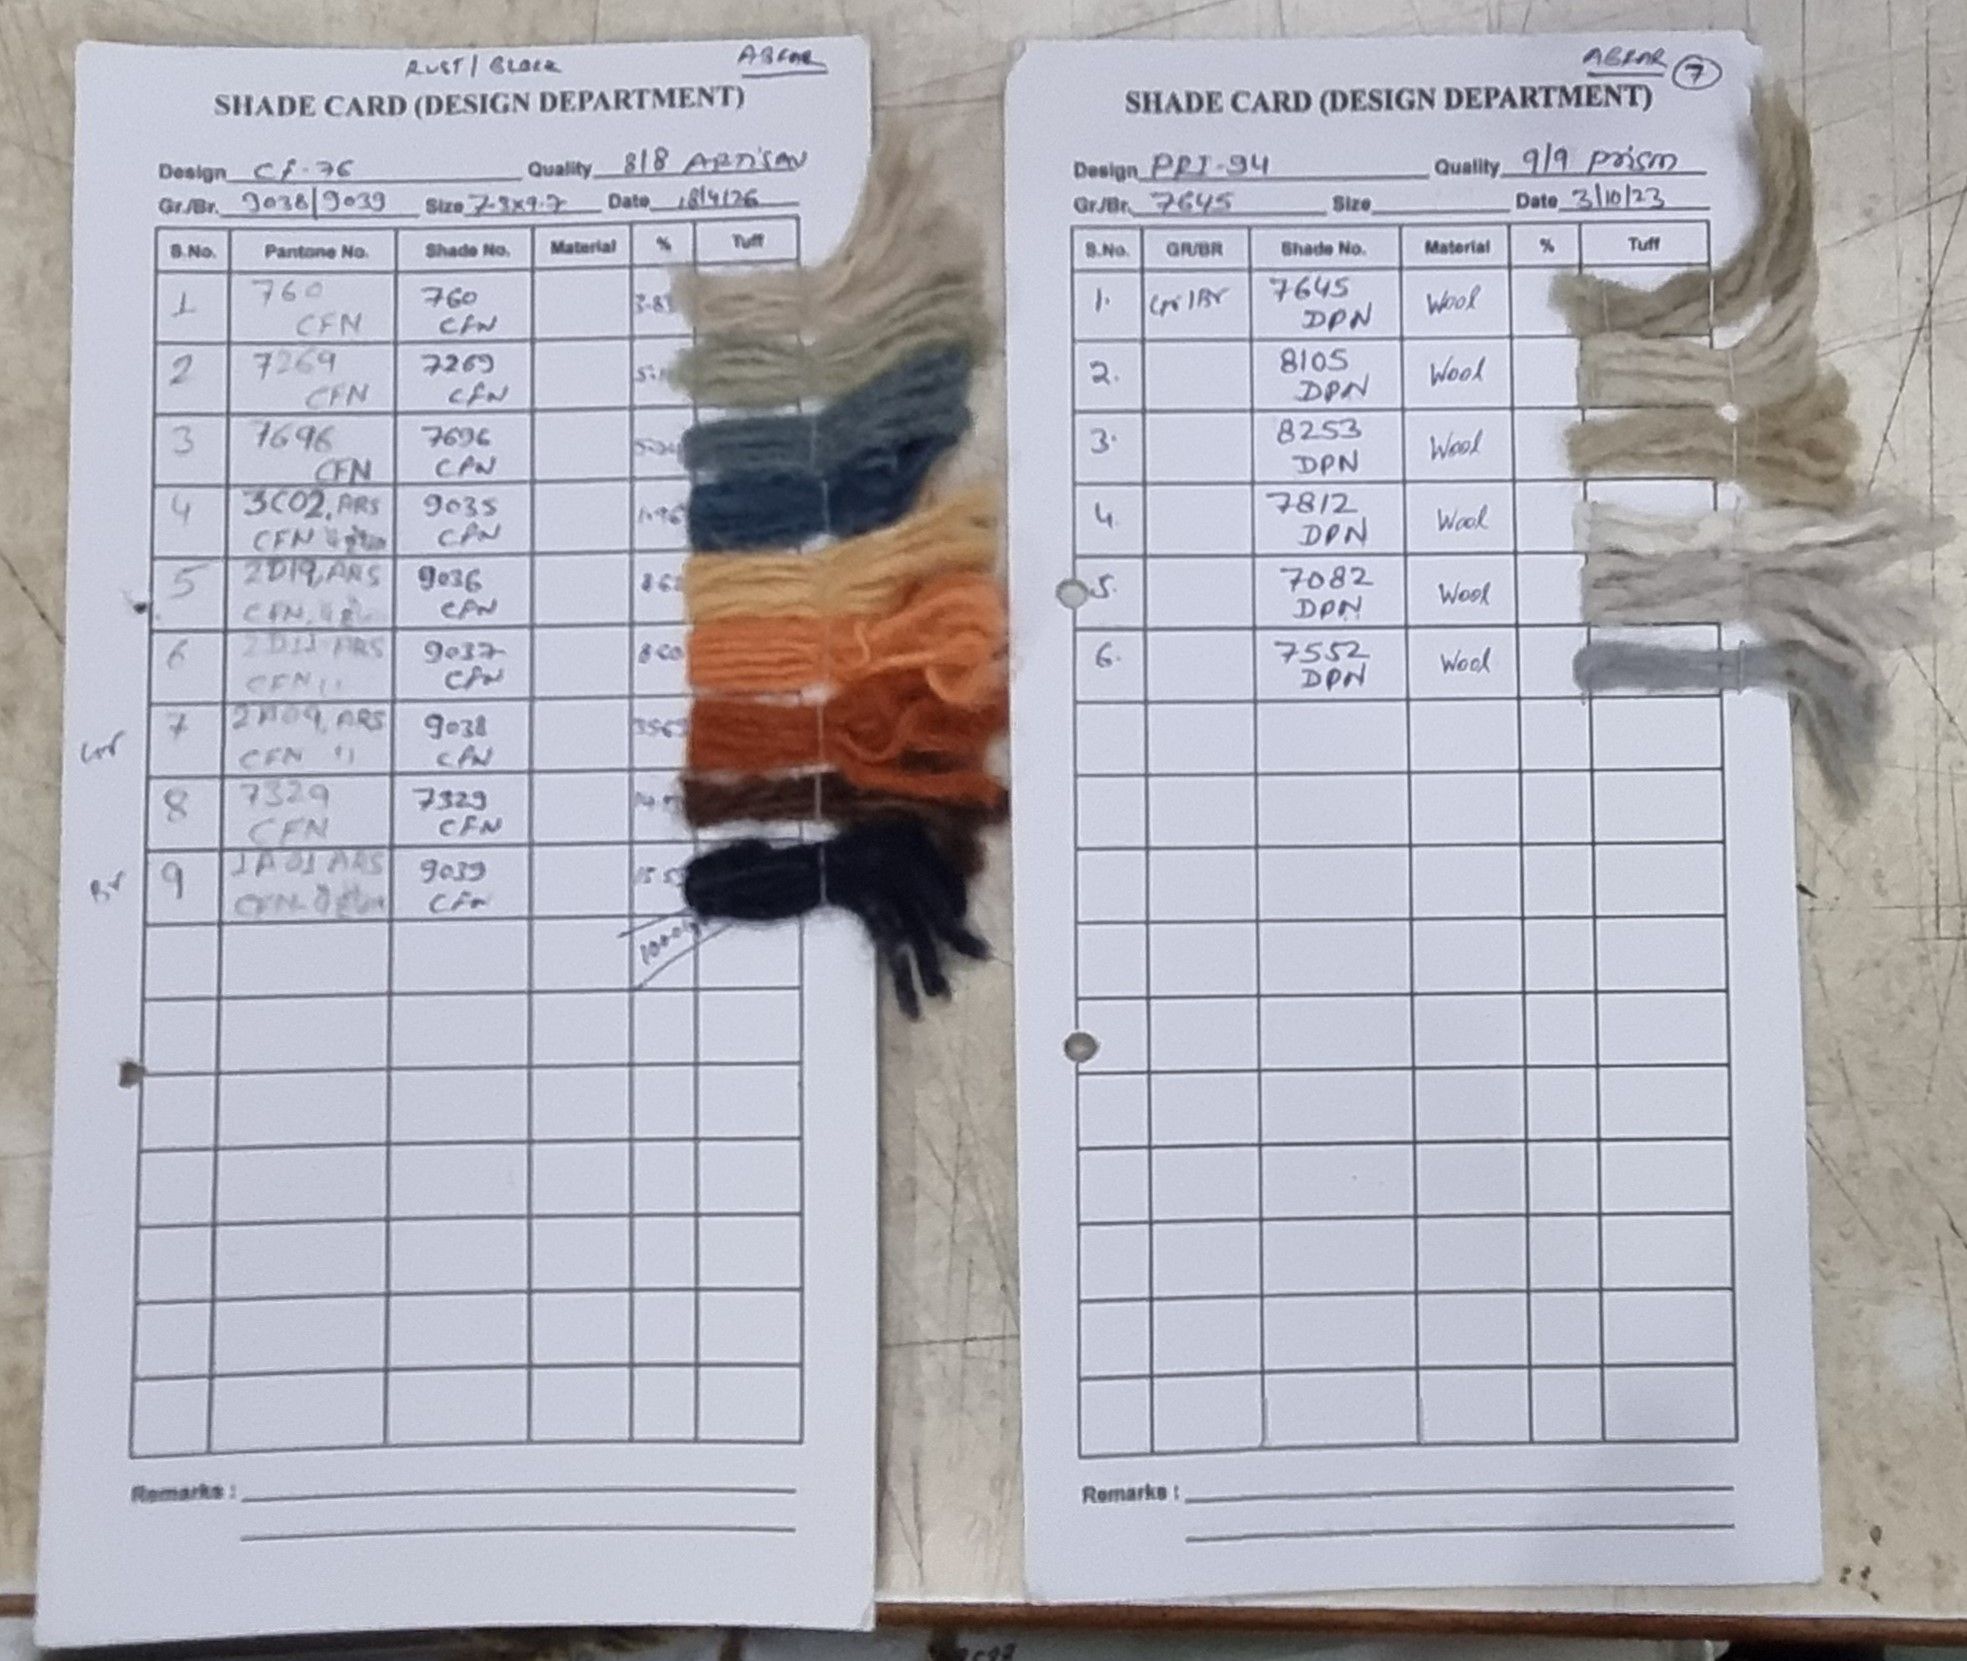 RUST / BLACK
SHADE CARD (DESIGN DEPARTMENT)
Design Cf-76 Quality 8/8 ARTISAN
Gr./Br. 9038/9039 Size 7-9x9-7 Date 18/4/26
S.No. Pantone No. Shade No. Material % Tuff
1 760 CFN 760 CFN
2 7269 CFN 7269 CFN
3 7696 CFN 7696 CFN
4 3C02, ARS CFN 9035 CFN
5 2D19, ARS CFN 9036 CFN
6 ARS CFN 9037 CFN
Gr 7 ARS CFN 9038 CFN
8 7329 CFN 7329 CFN
Br 9 1A01 ARS CFN 9039 CFN
Remarks :
7
SHADE CARD (DESIGN DEPARTMENT)
Design PRI-94 Quality 9/9 Prism
Gr./Br. 7645 Size Date 3/10/23
S.No. GR/BR Shade No. Material % Tuff
1. Gr/Br 7645 DPN Wool
2. 8105 DPN Wool
3. 8253 DPN Wool
4. 7812 DPN Wool
5. 7082 DPN Wool
6. 7552 DPN Wool
Remarks :